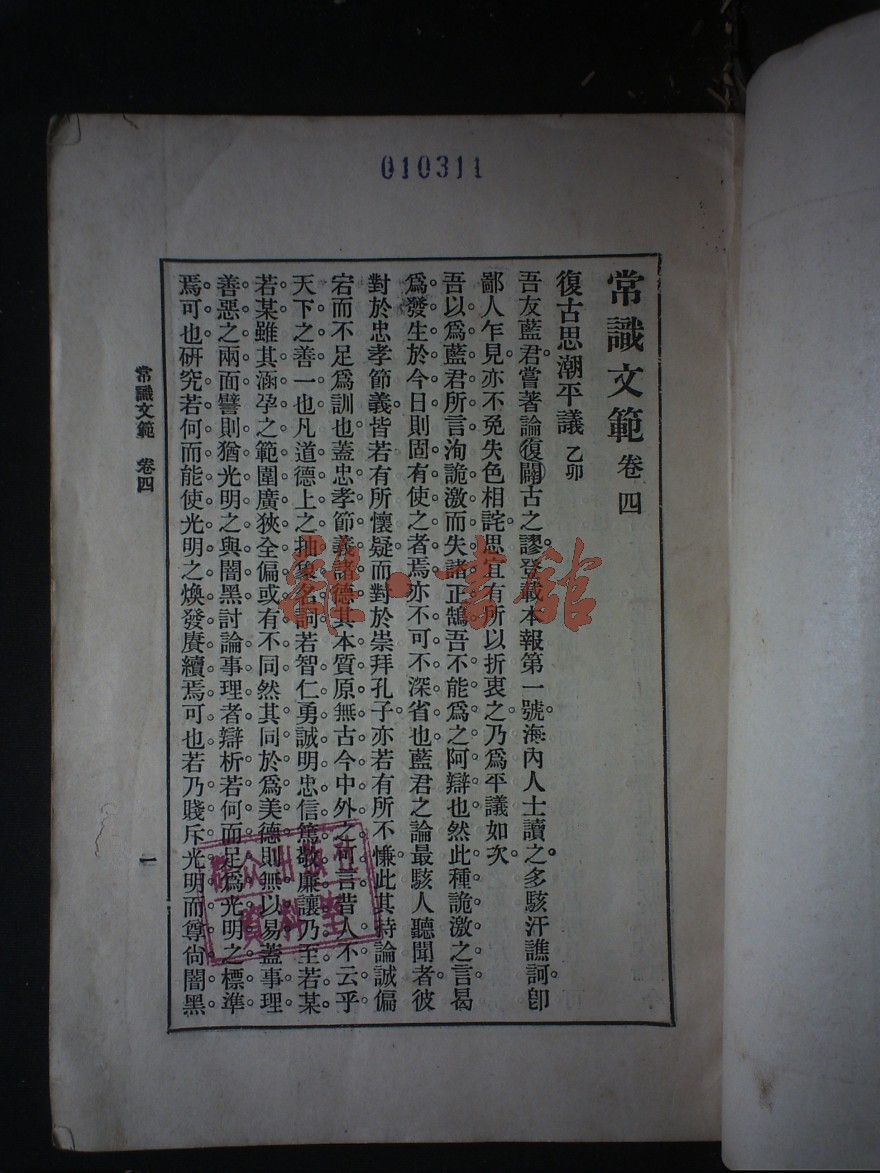 010311
常識文範 卷四
復古思潮平議 乙卯
吾友藍君嘗著論復闢古之謬。登載本報第一號。海內人士讀之。多駭汗譙訶。卽
鄙人乍見。亦不免失色相詫。思宜有所以折衷之。乃爲平議如次。
吾以爲藍君所言。洵詭激而失諸正鵠。吾不能爲之阿辯也。然此種詭激之言。曷
爲發生於今日。則固有使之者焉。亦不可不深省也。藍君之論最駭人聽聞者。彼
對於忠孝節義。皆若有所懷疑。而對於崇拜孔子。亦若有所不慊。此其持論誠偏
宕而不足爲訓也。蓋忠孝節義諸德。其本質原無古今中外之可言。昔人不云乎。
天下之善一也。凡道德上之抽象名詞。若智仁勇誠明忠信篤敬廉讓乃至若某
若某。雖其涵孕之範圍廣狹全偏或有不同。然其同於爲美德則無以易。蓋事理
善惡之兩面。譬則猶光明之與闇黑。討論事理者。辯析若何而足爲光明之標準
焉可也。研究若何而能使光明之煥發賡續焉可也。若乃賤斥光明而尊尙闇黑
常識文範 卷四
一
雜·書館
群众出版社
資料室